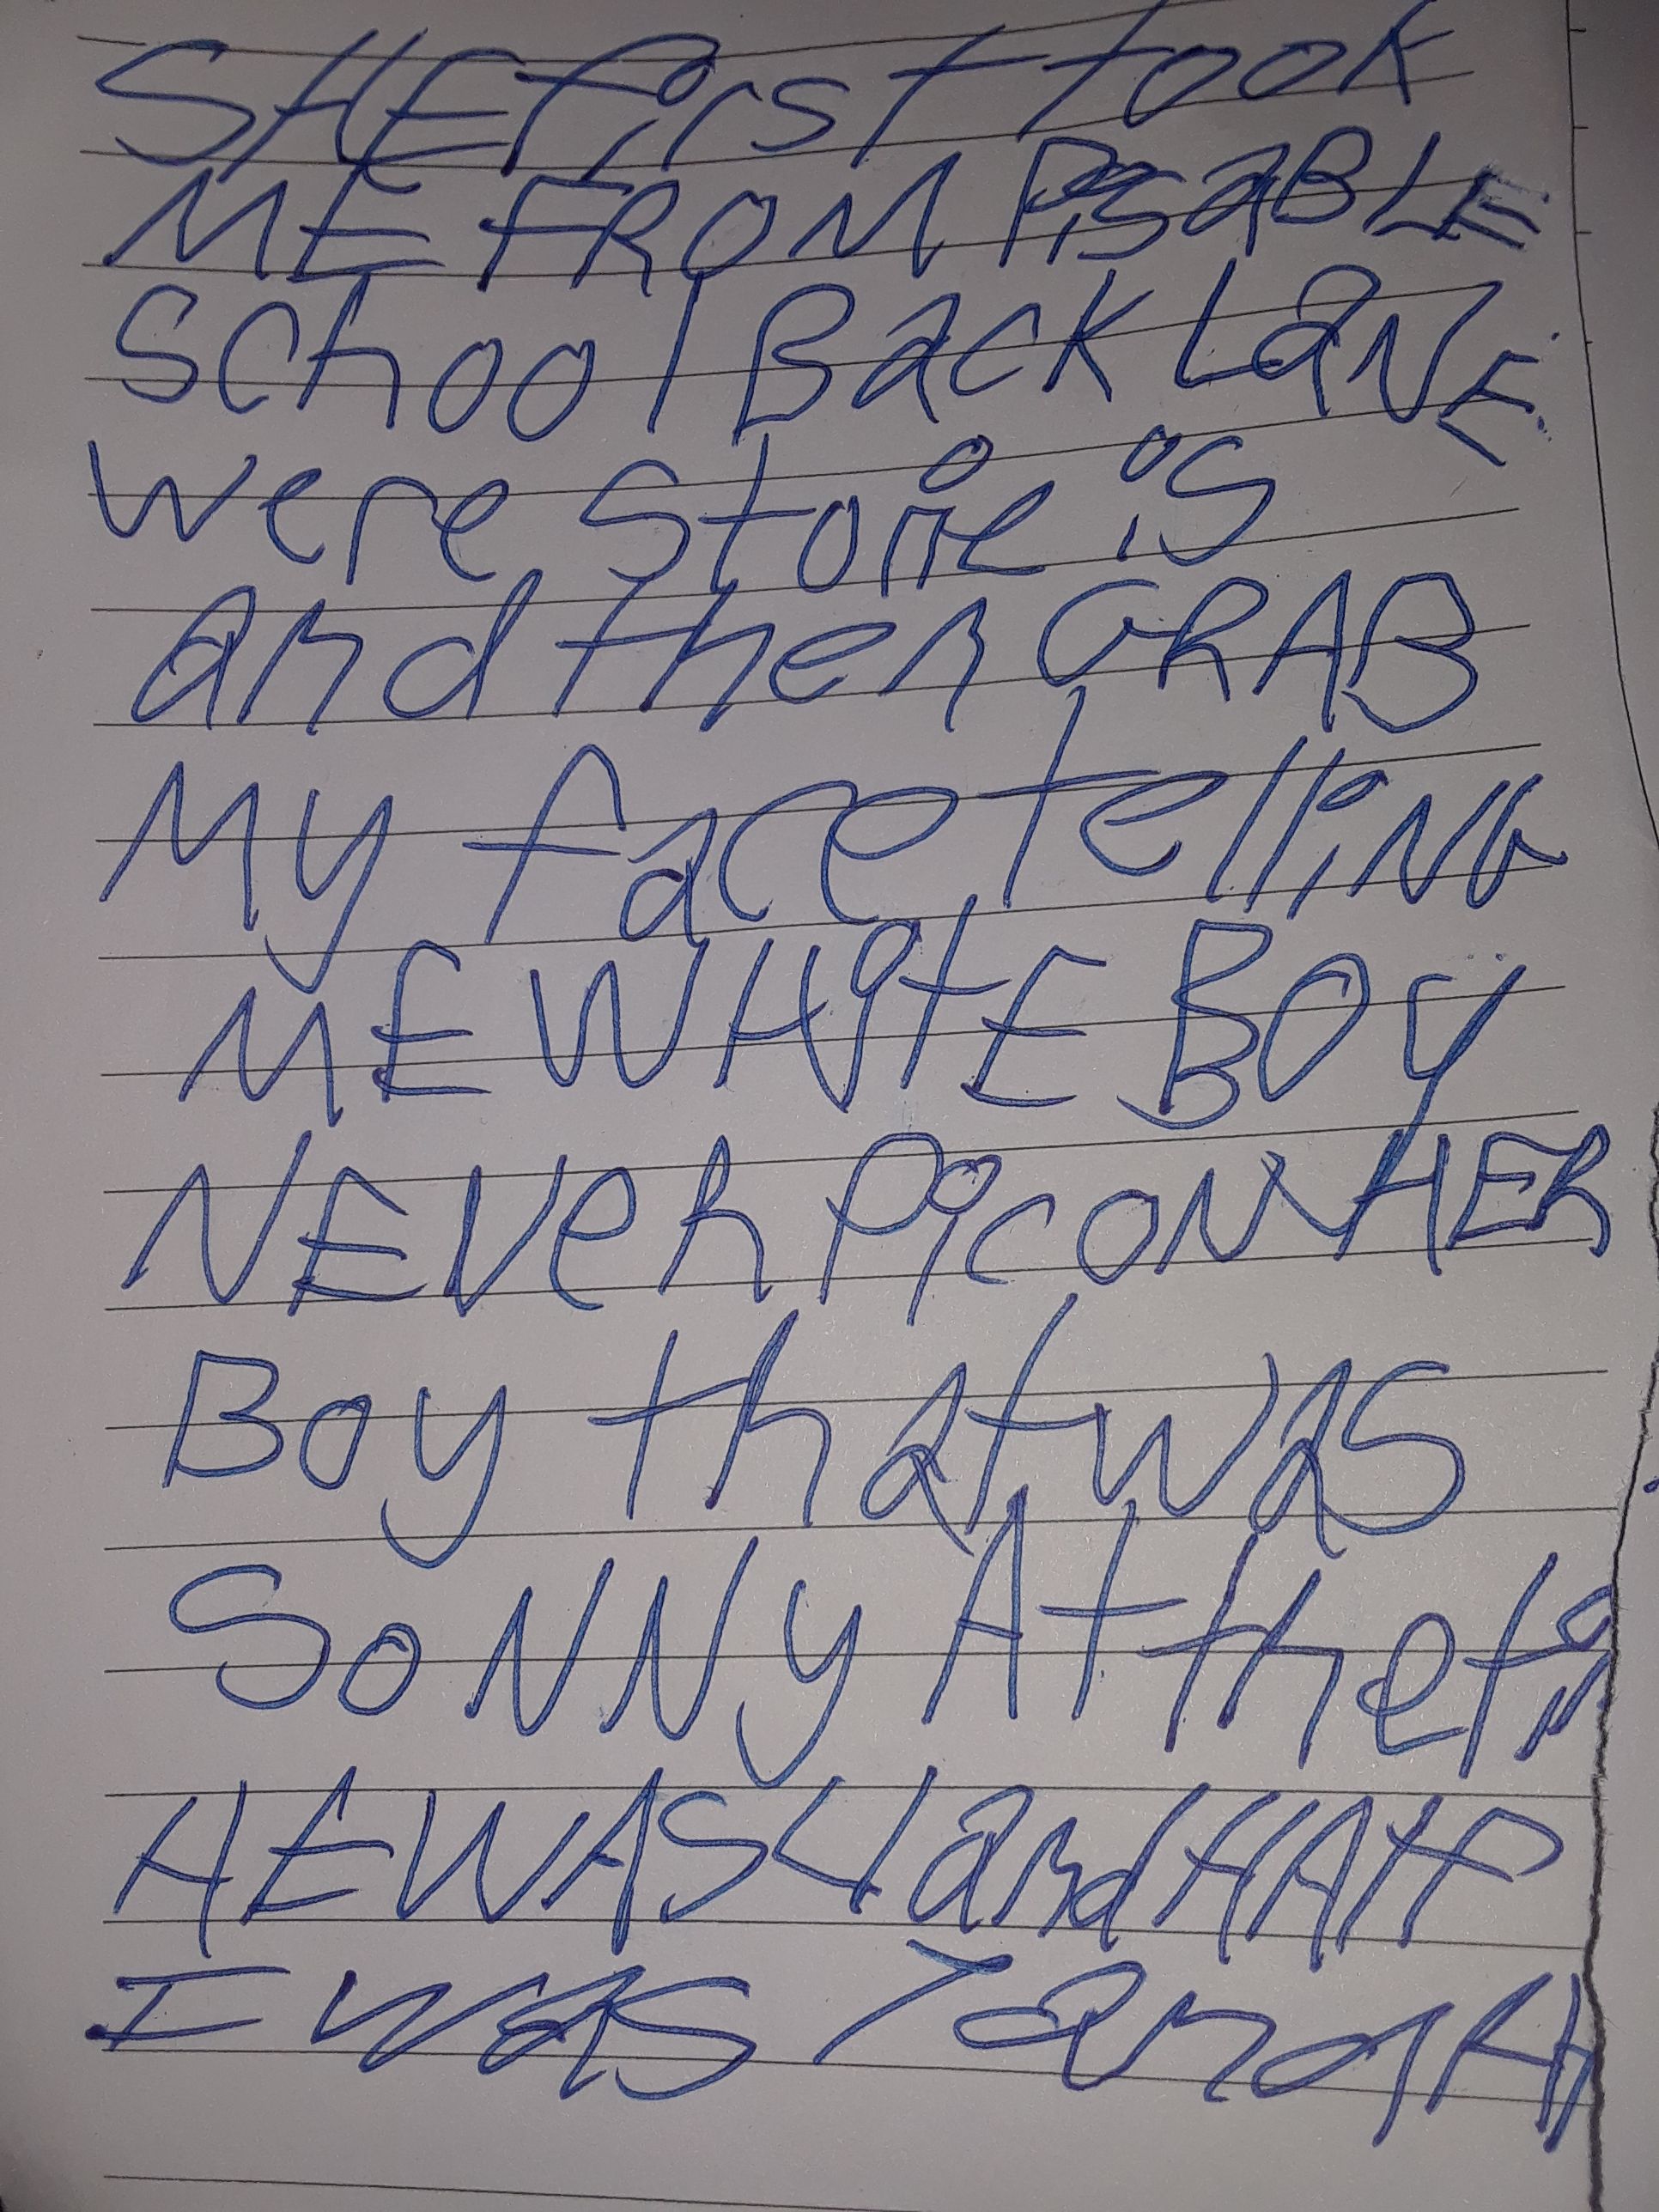 SHE first took
ME FROM DisaBLE
school Back LaNE
were stone is
and then GRAB
My face telliNG
ME WHitE BOY
NEVER Pic ON HER
Boy that was
SoNNy At the ti
HE WAS 4 and HAlf
I was 7 and H